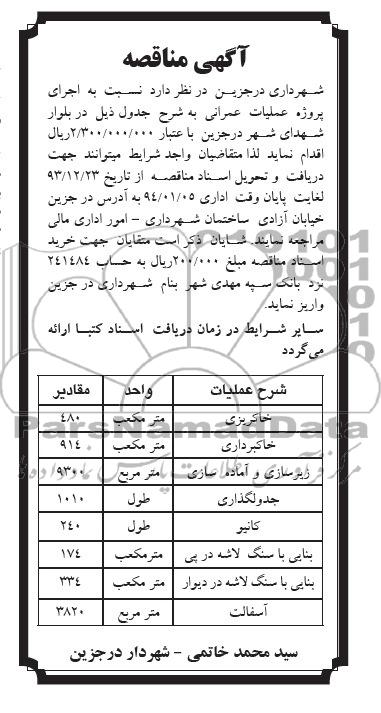 آگهی مناقصه
شهرداری درجزین در نظر دارد نسبت به اجرای
پروژه عملیات عمرانی به شرح جدول ذیل در بلوار
شهدای شهر درجزین با عتبار ۲/۳۰۰/۰۰۰/۰۰۰ریال
اقدام نماید لذا متقاضیان واجد شرایط میتوانند جهت
دریافت و تحویل اسناد مناقصه از تاریخ ۹۳/۱۲/۲۳
لغایت پایان وقت اداری ۹۴/۰۱/۰۵ به آدرس در جزین
خیابان آزادی ساختمان شهرداری – امور اداری مالی
مراجعه نمایند. شایان ذکر است متقایان جهت خرید
اسناد مناقصه مبلغ ۲۰۰/۰۰۰ریال به حساب ۲۴۱۴۸۴
نزد بانک سپه مهدی شهر بنام شهرداری در جزین
واریز نماید.
سایر شرایط در زمان دریافت اسناد کتبا ارائه
می‌گردد
شرح عملیات واحد مقادیر
خاکریزی متر مکعب ۴۸۰
خاکبرداری متر مکعب ۹۱۴
زیرسازی و آماده سازی متر مربع ۹۳۰۰
جدولگذاری طول ۱۰۱۰
کانیو طول ۲۴۰
بنایی با سنگ لاشه در پی مترمکعب ۱۷۴
بنایی با سنگ لاشه در دیوار متر مکعب ۳۳۴
آسفالت متر مربع ۳۸۲۰
سید محمد خاتمی – شهردار درجزین
ParsNamadData